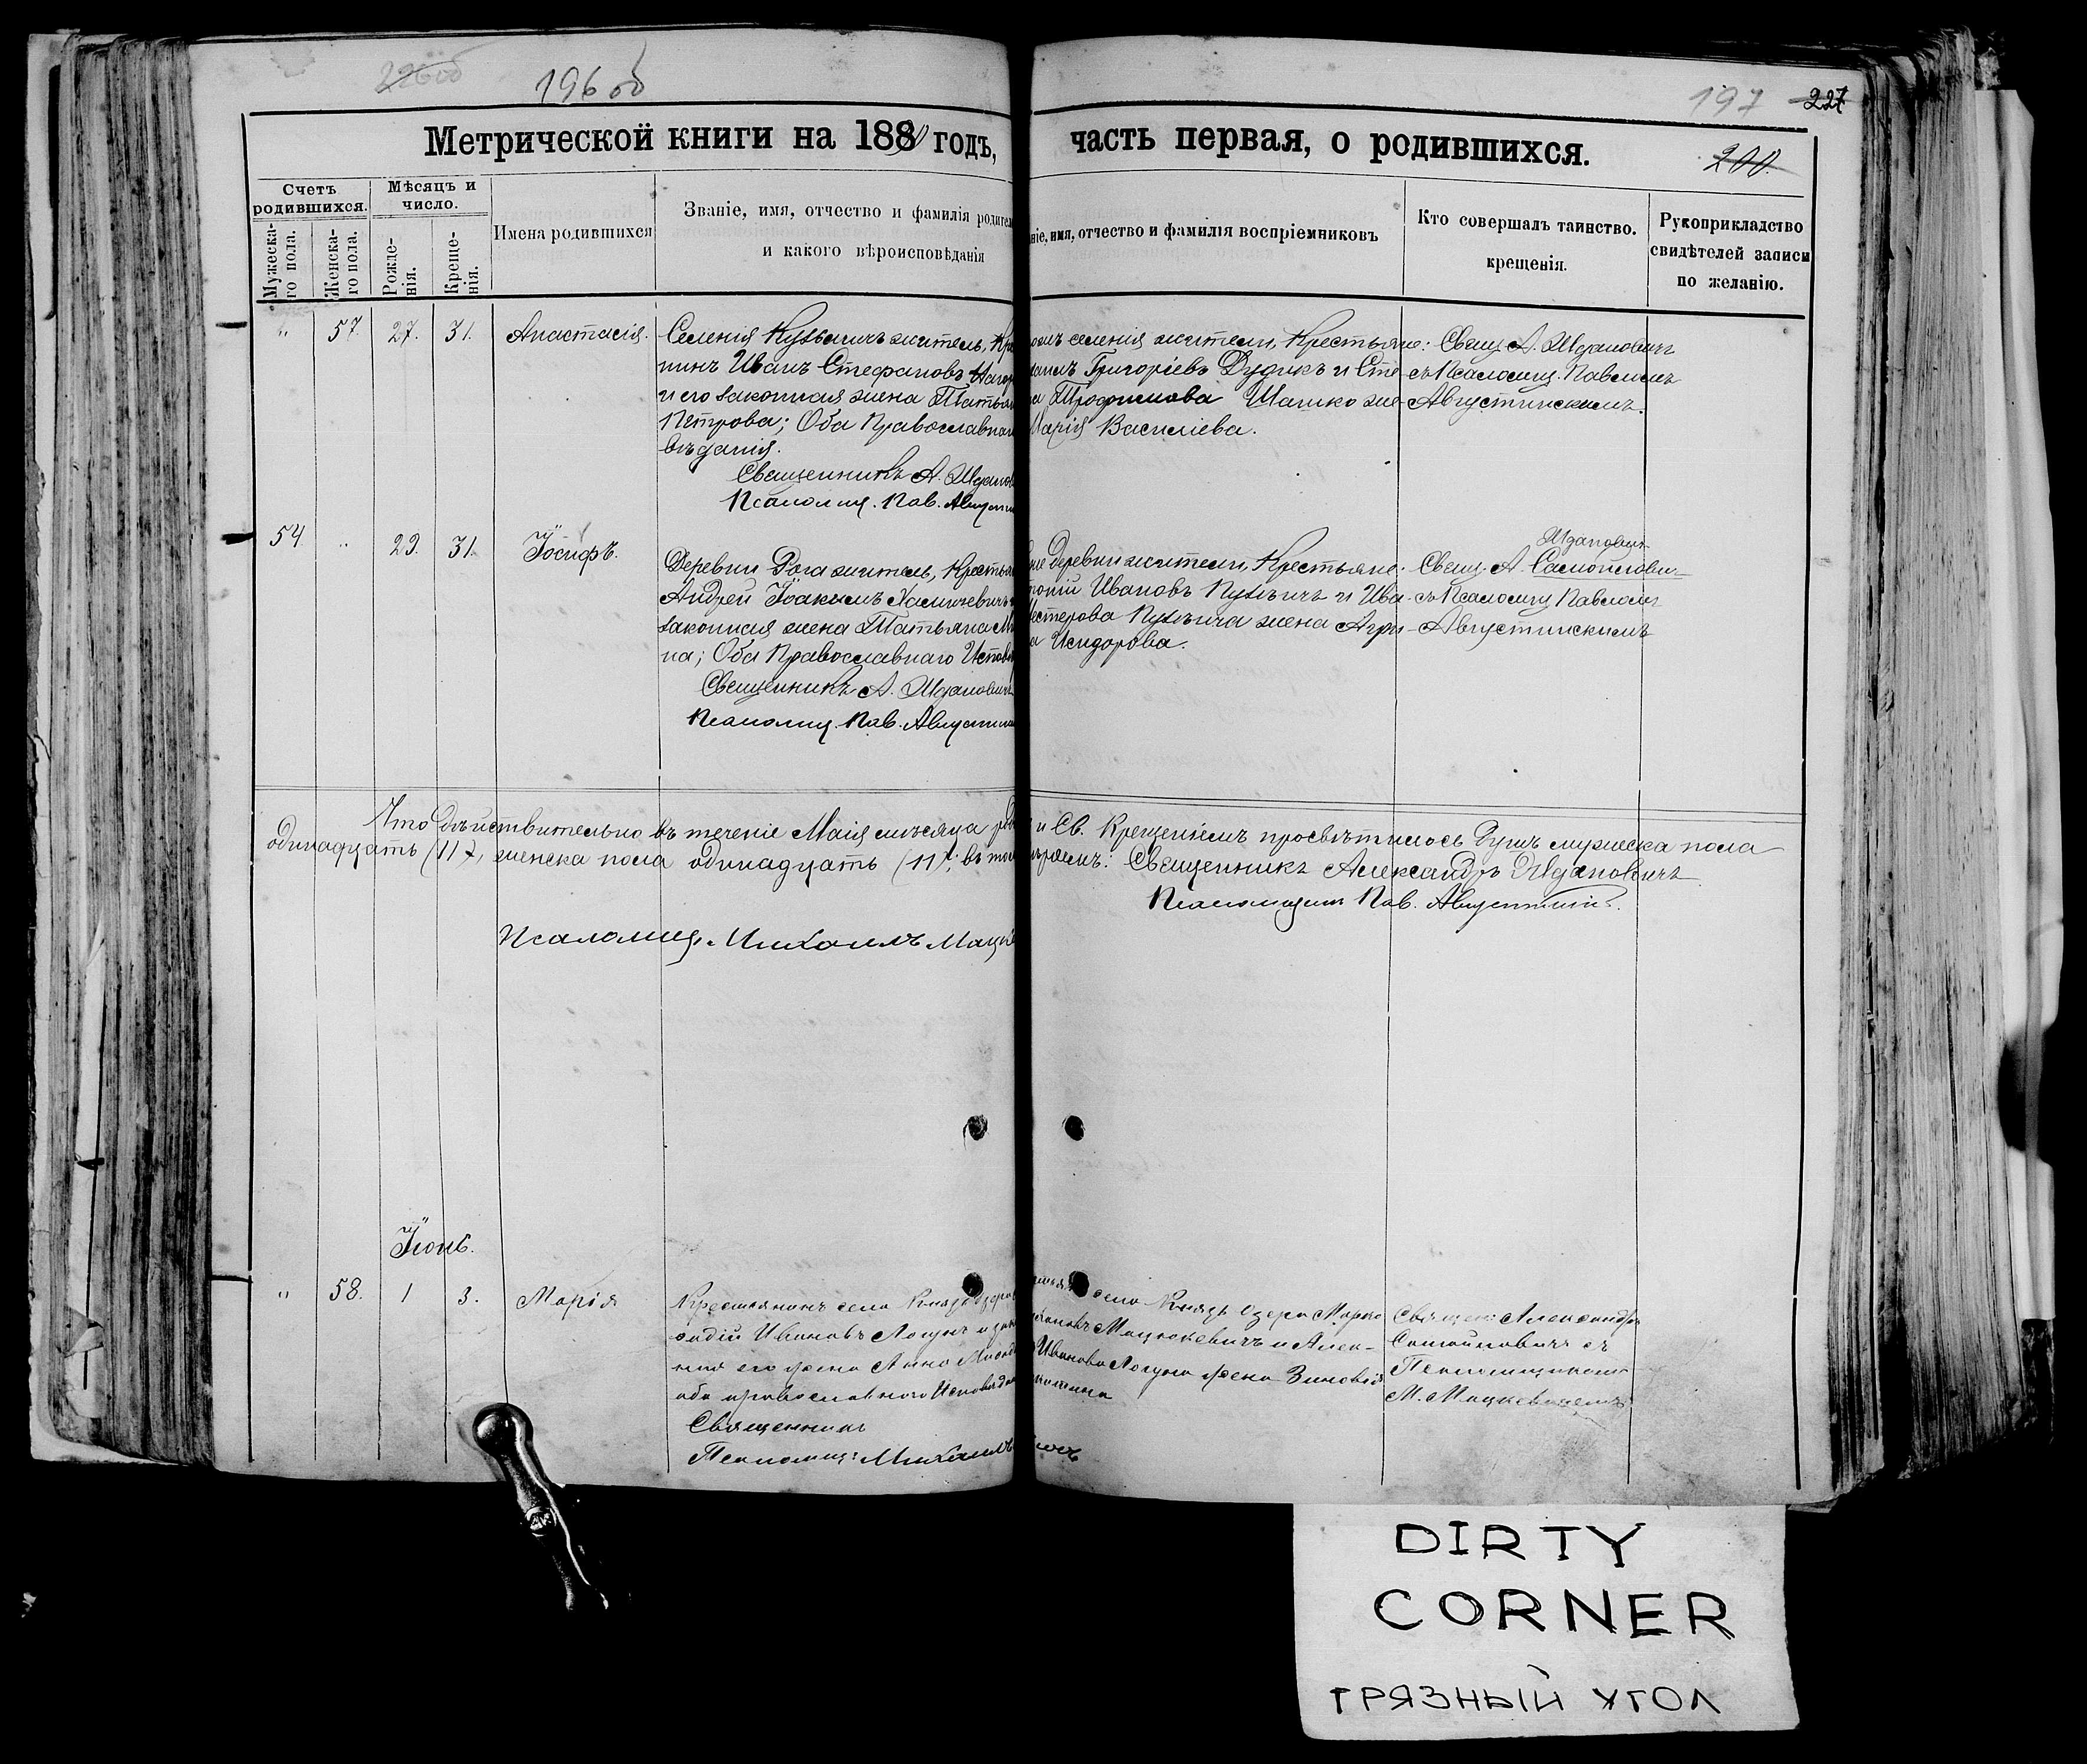 196 об
197
227
Метрической книги на 1880 годъ,
часть первая, о родившихся.
200.
Счетъ родившихся.
Мѣсяцъ и число.
Мужеска-го пола.
Женска-го пола.
Рожде-нія.
Креще-нія.
Имена родившихся
Званіе, имя, отчество и фамилія родител
и какого вѣроисповѣданія
ніе, имя, отчество и фамилія воспріемниковъ
Кто совершалъ таинство.
крещенія.
Рукоприкладство
свидѣтелей записи
по желанію.
" 57. 27. 31. Анастасія.
Селенія житель, Кре
нинъ Иванъ Стефановъ
и его законная жена Татья
Петрова; Оба Православна
вѣданія.
Священникъ А. Жданов
Псаломщ. Пав. Августи
селенія жители, Крестьяне:
Григоріевъ Дудикъ и Сте
Трофимова Шашко же-
Марія Василіева.
Свящ. А. Ждановичъ
съ Псаломщ. Павломъ
Августинскимъ.
54 " 29. 31. Іосифъ.
Деревни Рога житель, Крестья
Андрей Іоакимъ
законная жена Татьяна
на; Оба Православнаго Испов
Священникъ А. Жданович
Псаломщ. Пав. Августин
деревни жители, Крестьяне:
Ивановъ и Ива
жена Агри-
а Исидорова.
Жданович
Свящ. А. Самойлови
съ Псаломщ. Павломъ
Августинскимъ
Что дѣйствительно въ теченіе Маія мѣсяца
и Св. Крещеніемъ просвѣтилось Душъ мужеска пола
одинадцать (11), женска пола одинадцать (11), въ том
Священникъ Александръ Ждановичъ
Псаломщикъ Пав. Августин
Псаломщ. Михаилъ Мацк
Іюнь.
" 58. 1 3. Марія
Крестьянинъ села Князь озера
Ивановъ Логунъ и зак
ная его жена Анна
оба православнаго Исповѣда
Священникъ
Псаломщ: Михаилъ
села Князь Озера Марко
Мацкевичъ и Алек-
Иванова Логуна жена Зиновія
Священ: Александръ
Самойловичъ съ
Псаломщикомъ
М. Мацкевичемъ
DIRTY
CORNER
ГРЯЗНЫЙ УГОЛ